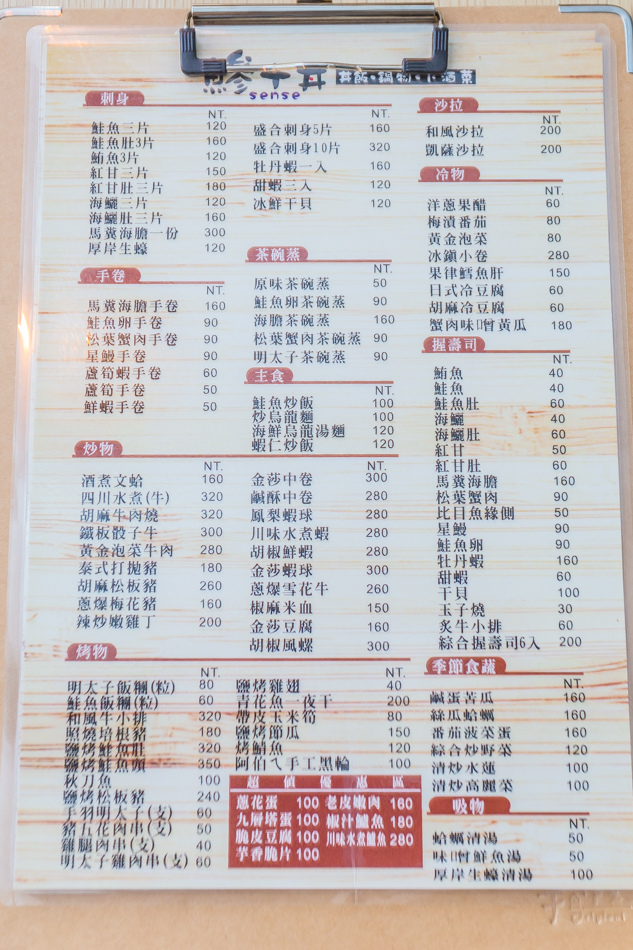 鰺十丼
丼飯•鍋物•小酒菜
sense
刺身
NT.
鮭魚三片 120
鮭魚肚3片 160
鮪魚3片 120
紅甘三片 150
紅甘肚三片 180
海鱺三片 120
海鱺肚三片 160
馬糞海膽一份 300
厚岸生蠔 120
NT.
盛合刺身5片 160
盛合刺身10片 320
牡丹蝦一入 160
甜蝦三入 120
冰鮮干貝 120
手卷
NT.
馬糞海膽手卷 160
鮭魚卵手卷 90
松葉蟹肉手卷 90
星鰻手卷 90
蘆筍蝦手卷 60
蘆筍手卷 50
鮮蝦手卷 50
茶碗蒸
NT.
原味茶碗蒸 50
鮭魚卵茶碗蒸 90
海膽茶碗蒸 160
松葉蟹肉茶碗蒸 90
明太子茶碗蒸 90
主食
NT.
鮭魚炒飯 100
炒烏龍麵 100
海鮮烏龍湯麵 120
蝦仁炒飯 120
炒物
NT.
酒煮文蛤 160
四川水煮(牛) 320
胡麻牛肉燒 320
鐵板骰子牛 300
黃金泡菜牛肉 280
泰式打拋豬 180
胡麻松板豬 260
蔥爆梅花豬 160
辣炒嫩雞丁 200
NT.
金莎中卷 300
鹹酥中卷 280
鳳梨蝦球 280
川味水煮蝦 300
胡椒鮮蝦 280
金莎蝦球 300
蔥爆雪花牛 260
椒麻米血 150
金莎豆腐 160
胡椒風螺 300
烤物
NT.
明太子飯糰(粒) 80
鮭魚飯糰(粒) 60
和風牛小排 320
照燒培根豬 180
鹽烤鮭魚肚 320
鹽烤鮭魚頭 350
秋刀魚 100
鹽烤松板豬 240
手羽明太子(支) 60
豬五花肉串(支) 50
雞腿肉串(支) 40
明太子雞肉串(支) 60
NT.
鹽烤雞翅 40
青花魚一夜干 200
帶皮玉米筍 80
鹽烤節瓜 150
烤鯖魚 120
阿伯ㄟ手工黑輪 100
超值優惠區
蔥花蛋 100 老皮嫩肉 160
九層塔蛋 100 椒汁鱸魚 180
脆皮豆腐 100 川味水煮鱸魚 280
芋香脆片 100
沙拉
NT.
和風沙拉 200
凱薩沙拉 200
冷物
NT.
洋蔥果醋 60
梅漬番茄 80
黃金泡菜 80
冰鎮小卷 280
果律鱈魚肝 150
日式冷豆腐 60
胡麻冷豆腐 60
蟹肉味噌黃瓜 180
握壽司
NT.
鮪魚 40
鮭魚 40
鮭魚肚 60
海鱺 40
海鱺肚 60
紅甘 50
紅甘肚 60
馬糞海膽 160
松葉蟹肉 90
比目魚緣側 50
星鰻 90
鮭魚卵 90
牡丹蝦 160
甜蝦 60
干貝 100
玉子燒 30
炙牛小排 60
綜合握壽司6入 200
季節食蔬
NT.
鹹蛋苦瓜 160
絲瓜蛤蠣 160
番茄菠菜蛋 160
綜合炒野菜 120
清炒水蓮 100
清炒高麗菜 100
吸物
NT.
蛤蠣清湯 50
味噌鮮魚湯 50
厚岸生蠔清湯 100